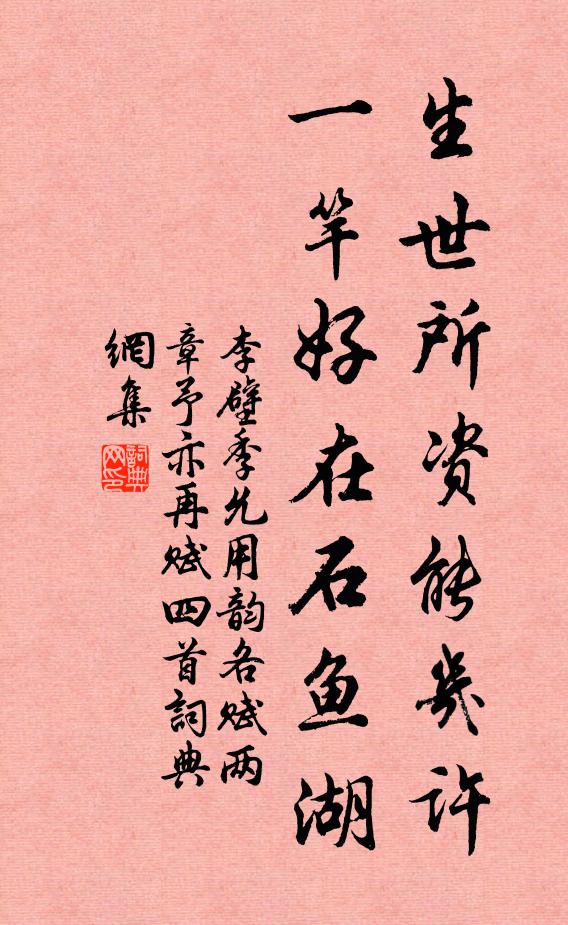 生世所资能几许
一竿好在石鱼湖
李壁季允用韵各赋两
章予亦再赋四首词典
網集
詞典網印